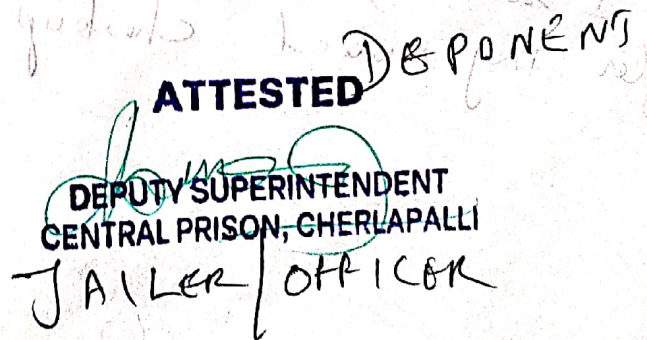 DEPONENT
ATTESTED
DEPUTY SUPERINTENDENT
CENTRAL PRISON, CHERLAPALLI
JAILER/OFFICER